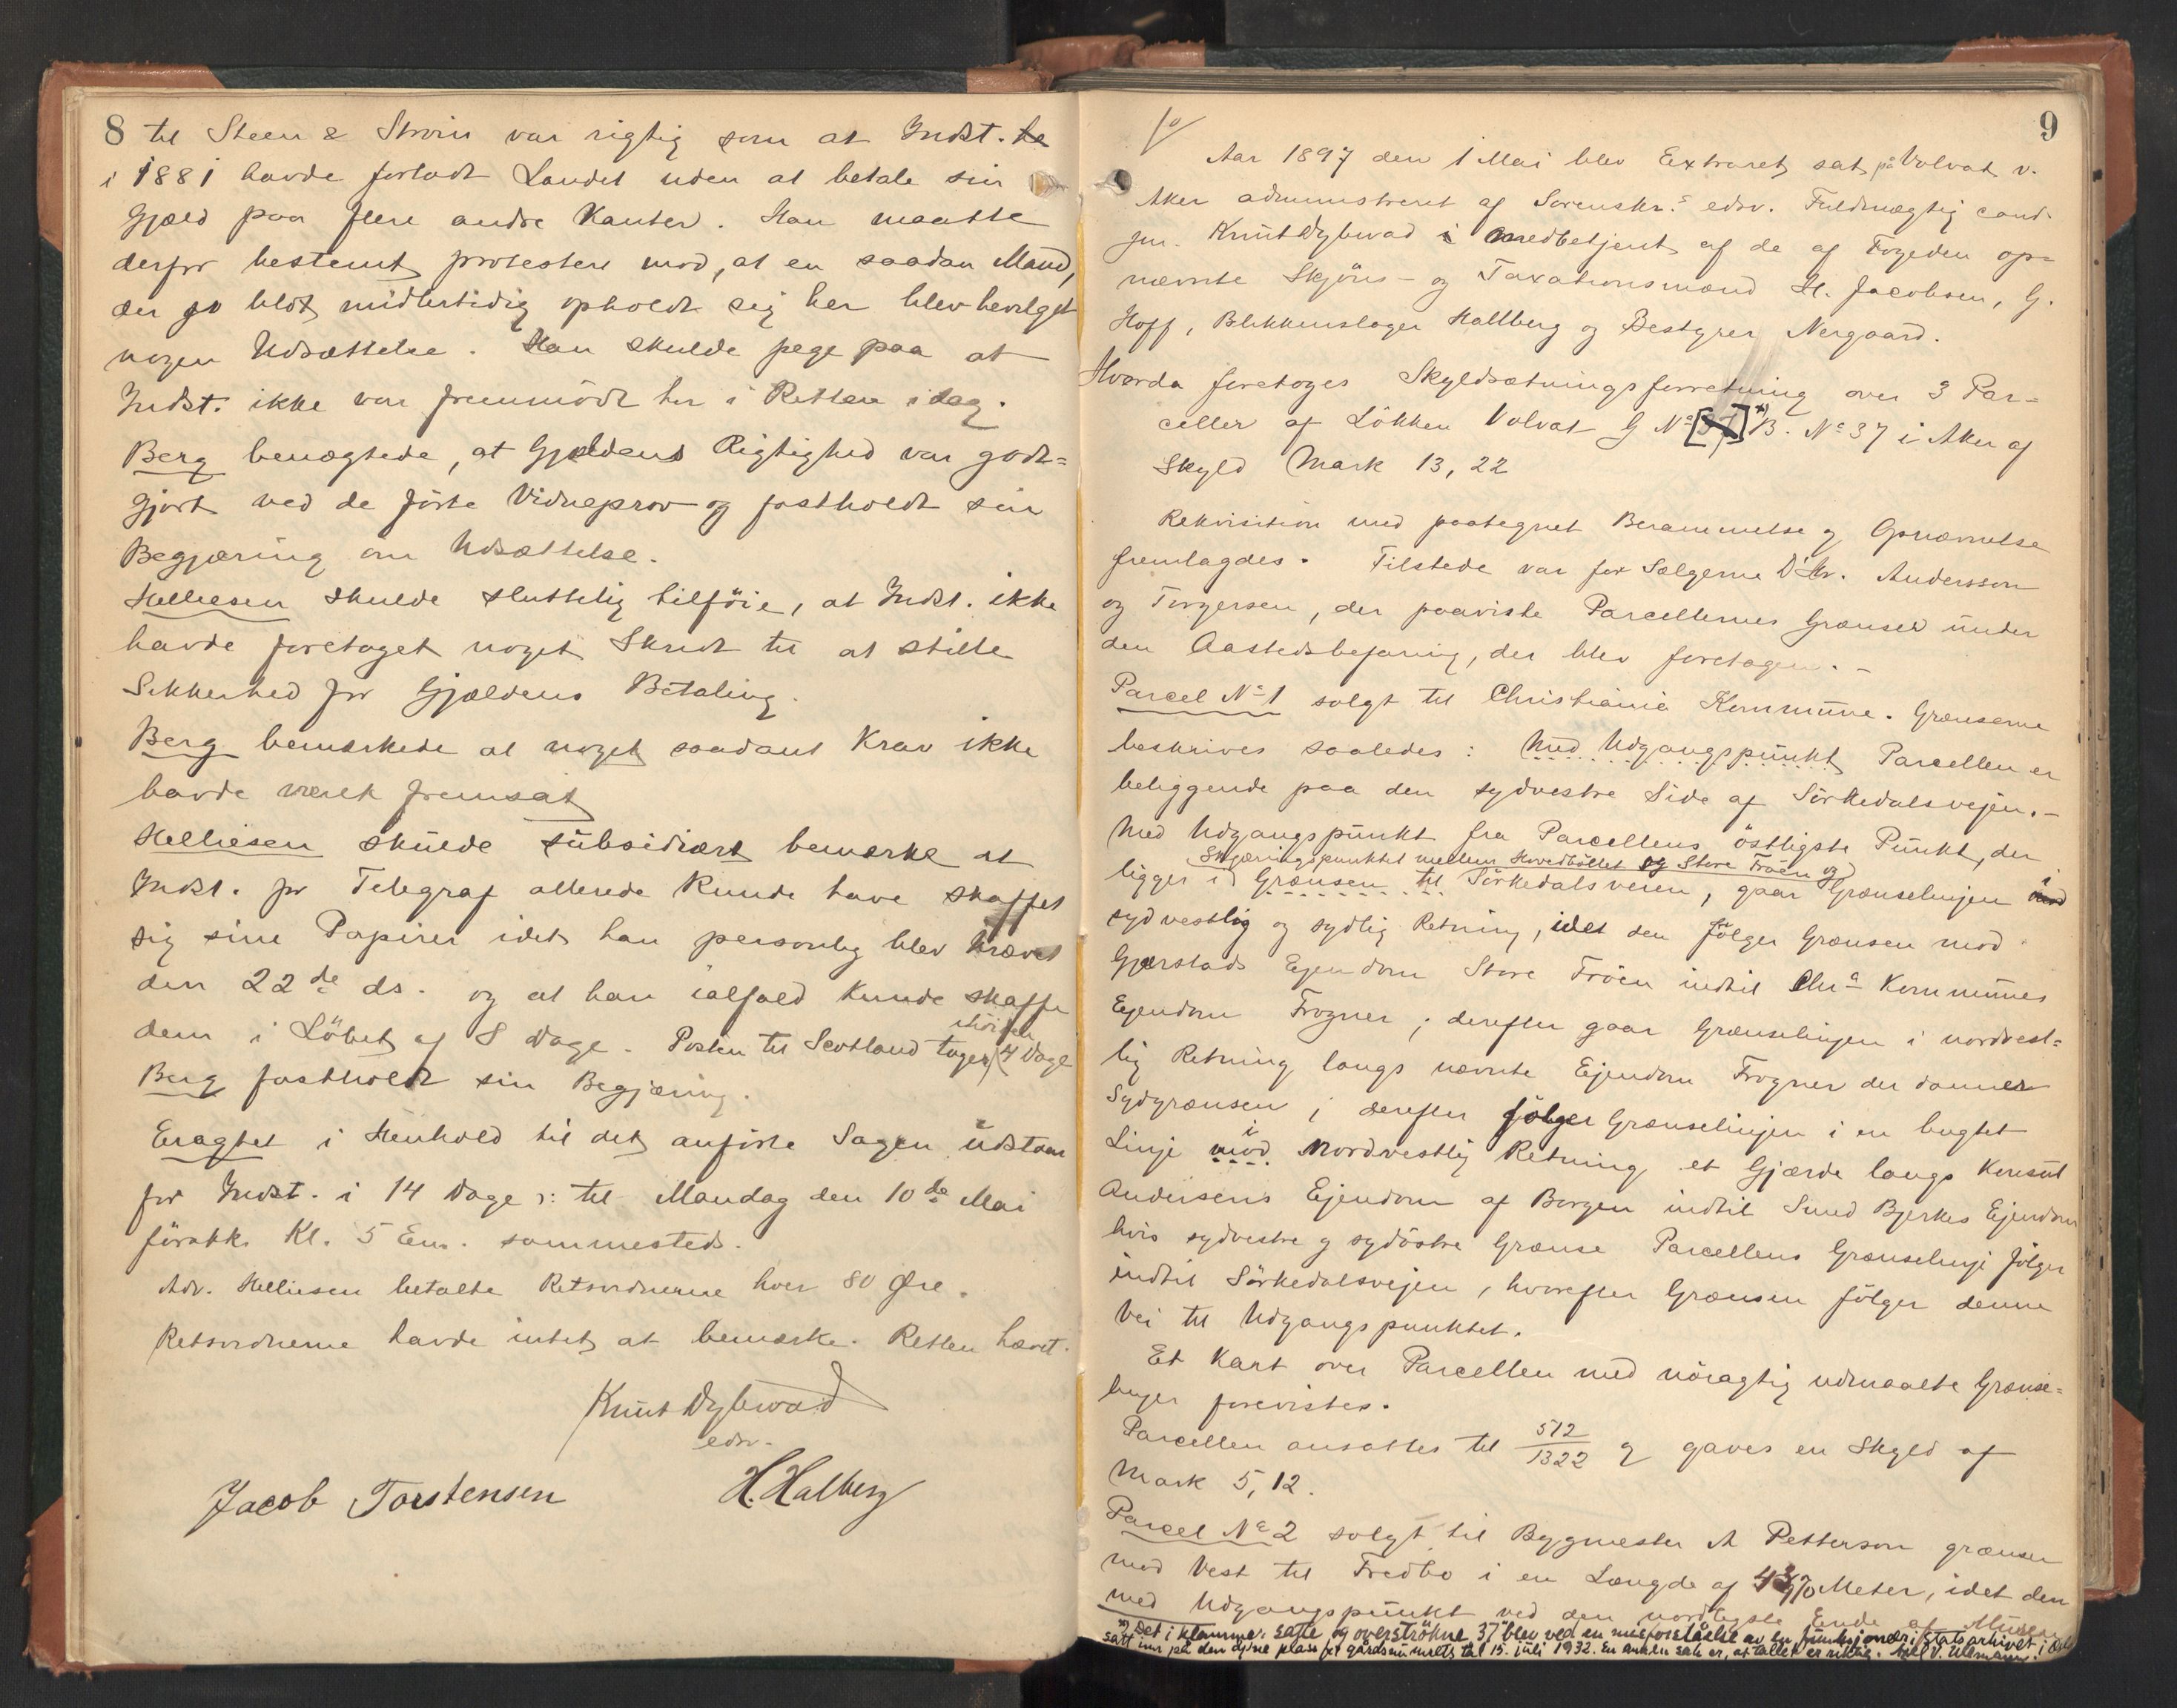 8 til Steen & Strøm var rigtig som at Indst. ha
i 1881 havde forladt Landet uden at betale sin
Gjæld paa flere andre Kanter. Han maatte
derfor bestemt protestere mod, at en saadan Mand,
der jo blot midlertidig opholdt sig her blev bevilget
nogen Udsættelse. Han skulde pege paa at
Indst. ikke var fremmödt her i Retten idag.
Berg benægtede, at Gjældens Rigtighed var godt-
gjort ved de förte Vidneprov og fastholdt sin
Begjæring om Udsættelse.
Helliesen skulde sluttelig tilföie, at Indst. ikke
havde foretaget noget Skridt til at stille
Sikkerhed for Gjældens Betaling.
Berg bemærkede at noget saadant Krav ikke
havde været fremsat
Helliesen skulde subsidiært bemærke at
Indst. pr Telegraf allerede kunde have skaffet
sig sine Papirer idet han personlig blev krævet
den 22de ds. og at han ialfald kunde skaffe
dem i Löbet af 8 Dage. Posten til Scotland tager höisen 4 Dage
Berg fastholdt sin Begjæring.
Eragtet i Henhold til det anförte Sagen udstaar
for Indst. i 14 Dage ɔ: til Mandag den 10de Mai
förstk. Kl. 5 Em. sammesteds.
Adv. Helliesen betalte Retsvidnerne hver 80 Øre.
Retsvidnerne havde intet at bemærke. Retten hævet.
Knut Dybwad
edsv.
Jacob Torstensen H. Halberg
9
Aar 1897 den 1 Mai blev Extraret sat på Volvat v.
Aker administreret af Sorenskr.s edsv. Fuldmægtig cand.
jur. Knut Dybwad i medbetjent af de af Fogeden op-
nævnte Skjöns- og Taxationsmænd H. Jacobsen, G.
Hoff, Blikkenslager Hallberg og Bestyrer Nergaard.
Hvorda foretoges Skyldsætningsforretning over 3 Par-
celler af Lökken Volvat G No [37] *) B. No 37 i Aker af
Skyld Mark 13,22
Rekvisition med paategnet Berammelse og Opnævnelse
fremlagdes. Tilstede var for Sælgerne D'Hr. Andersson
og Torgersen, der paaviste Parcellernes Grænser under
den Aastedsbefaring, der blev foretagen. -
Parcel No 1 solgt til Christiania Kommune. Grænserne
beskrives saaledes: Med Udgangspunkt Parcellen er
beliggende paa den sydvestre Side af Sörkedalsvejen. -
Med Udgangspunkt fra Parcellens östligste Punkt, der
Skjæringspunktet mellem Hovedböllet og Store Fröen og
ligger i Grænsen til Sörkedalsveien, gaar Grænselinjen mod i
sydvestlig og sydlig Retning, idet den fölger Grænsen mod
Gjerstads Ejendom Store Fröen indtil Chra Kommunes
Ejendom Frogner; derefter gaar Grænselinjen i nordvest-
lig Retning langs nævnte Ejendom Frogner der danner
Sydgrænsen; derefter fölger Grænselinjen i en bugtet
Linje mod i nordvestlig Retning et Gjærde langs Konsul
Andersens Ejendom af Borgen indtil Smed Bjerkes Ejendom
hvis sydvestre og sydöstre Grænse Parcellens Grænselinje fölger
indtil Sörkedalsvejen, hvorefter Grænsen fölger denne
Vei til Udgangspunktet.
Et Kart over Parcellen med nöiagtig udmaalte Grænse-
linjer forevistes.
Parcellen ansattes til 512/1322 og gaves en Skyld af
Mark 5,12.
Parcel No 2 solgt til Bygmester A Petterson grænser
mod Vest til Fredbo i en Længde af Meter, idet den
med Udgangspunkt ved den nordligste Ende af Muren
*) Det i klamme satte og overströkne 37 blev ved en misforståelse av en funksjonær i Statsarkivet i Oslo
satt inn på den åpne plass for gårdsnumrets tal 15. juli 1932. En anden sak er, at tallet er riktig.